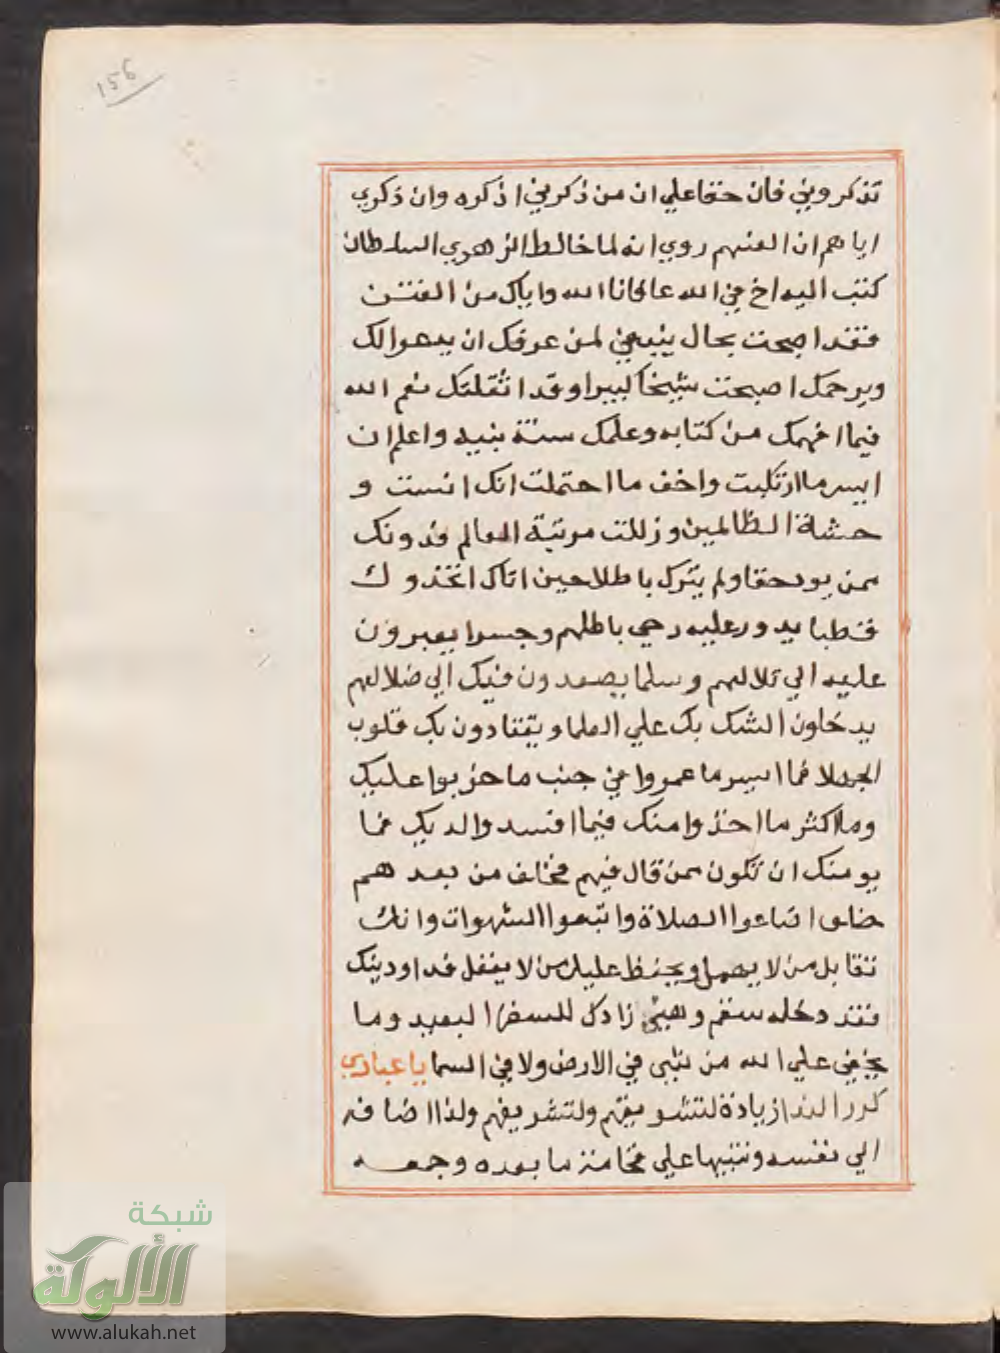 156
تذكروني فان حقا علي ان من ذكرني اذكره وان ذكري
اياهم ان العنهم روي انه لما خالط الزهري السلطان
كتب اليه اخ في الله عافانا الله واياك من الفتن
فقد اصبحت بحال ينبغي لمن عرفك ان يدعوا لك
ويرحمك اصبحت شيخا كبيرا وقد اثقلتك نعم الله
فيما افهمك من كتابه وعلمك سنة نبيه واعلم ان
ايسر ما ارتكبت واخف ما احتملت انك انست و
حشة الظالمين و مرتبة العالم
ممن يود حقا ولم يترك باطلا حين اتاك اتخذوك
قطبا يدور عليه رحي باطلهم وجسرا يعبرون
عليه الي وسلما يصعدون فيك الي ضلالهم
يدخلون الشك بك علي العلما ويقتادون بك قلوب
الجهلا فما ايسر ما عمروا في جنب ما خربوا عليك
وما اكثر ما اخذوا منك فيما افسدوا لديك فما
يومنك ان تكون ممن قال فيهم فخلف من بعدهم
خلف اضاعوا الصلاة واتبعوا الشهوات وانك
تقابل من لا يجهل ويحفظ عليك من لا يغفل فداو دينك
فقد دخله سقم وهيئ زادك للسفر البعيد وما
يخفي علي الله من شي في الارض ولا في السما يا عبادي
كرر الندا زيادة لتشريفهم ولذا اضافه
الي نفسه وتنبيها علي فخامة ما بعده وجمعه
شبكة
الألوكة
www.alukah.net